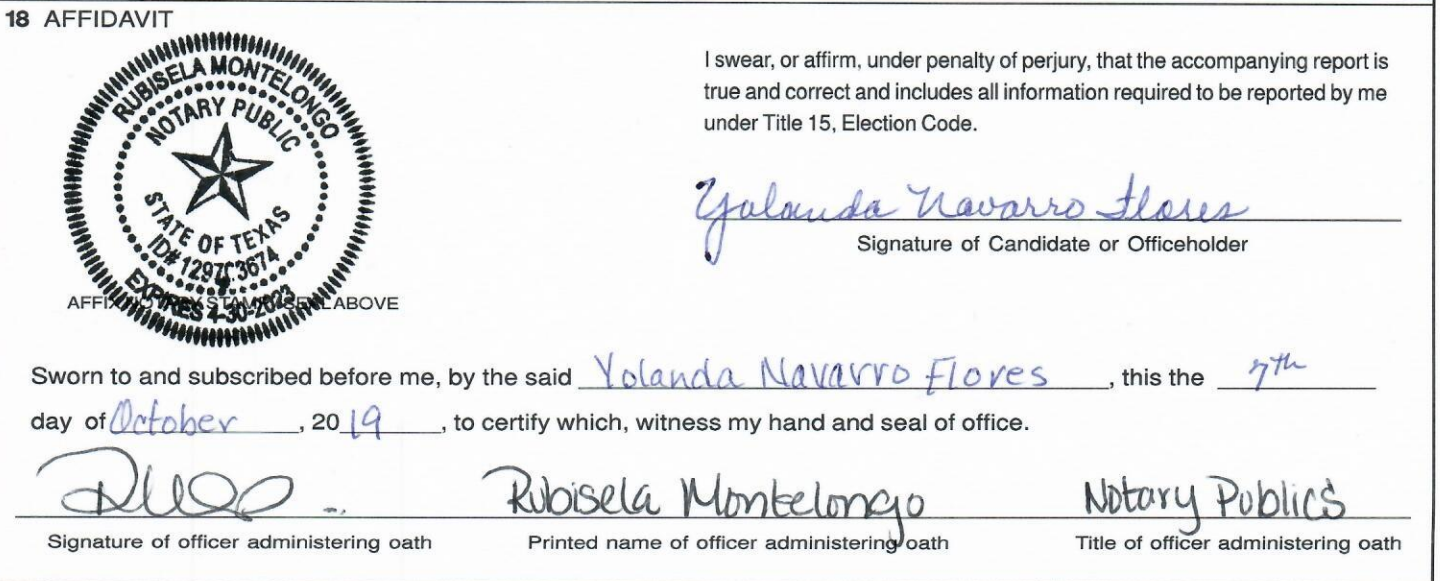 18 AFFIDAVIT
RUBISELA MONTELONGO
NOTARY PUBLIC
STATE OF TEXAS
EXPIRES 4-30-2023
I swear, or affirm, under penalty of perjury, that the accompanying report is
true and correct and includes all information required to be reported by me
under Title 15, Election Code.
Yolanda Navarro Flores
Signature of Candidate or Officeholder
ABOVE
Sworn to and subscribed before me, by the said Yolanda Navarro Flores, this the 7th
day of October, 20 19, to certify which, witness my hand and seal of office.
Rubisela Montelongo Notary Publics
Signature of officer administering oath Printed name of officer administering oath Title of officer administering oath